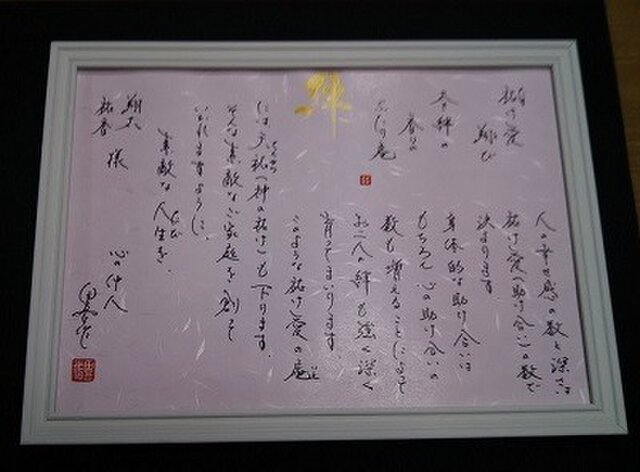 絆
祐け愛
翔び
太き絆の
ふたりの庵
人の幸せ感の数と深さは
祐け愛(助け合い)の数で
決まります
身体的な助け合いは
もちろん 心の助け合いの
数も増えることによって
お二人の絆も強く深く
育ってまいります。
このような祐け愛の庵
には天祐(神の祐け)も下ります。
そんな素敵なご家庭を創って
いかれますように、
素敵な人生を。
翔太
祐香 様
心の仲人